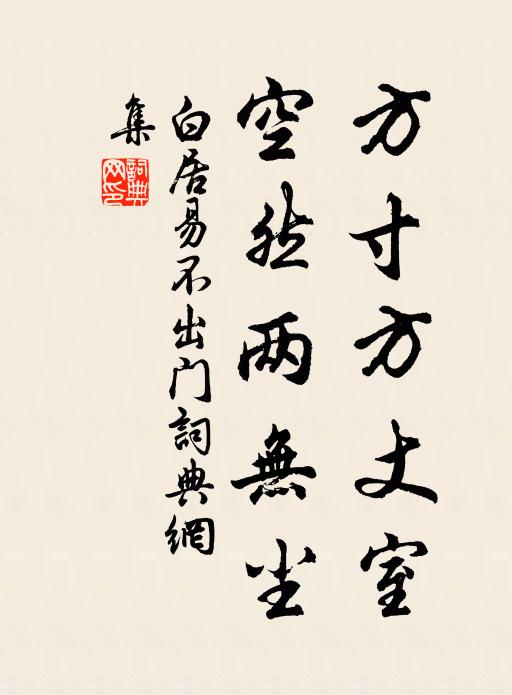 方寸方丈室
空然两無尘
白居易不出门詞典網
集
詞典网印